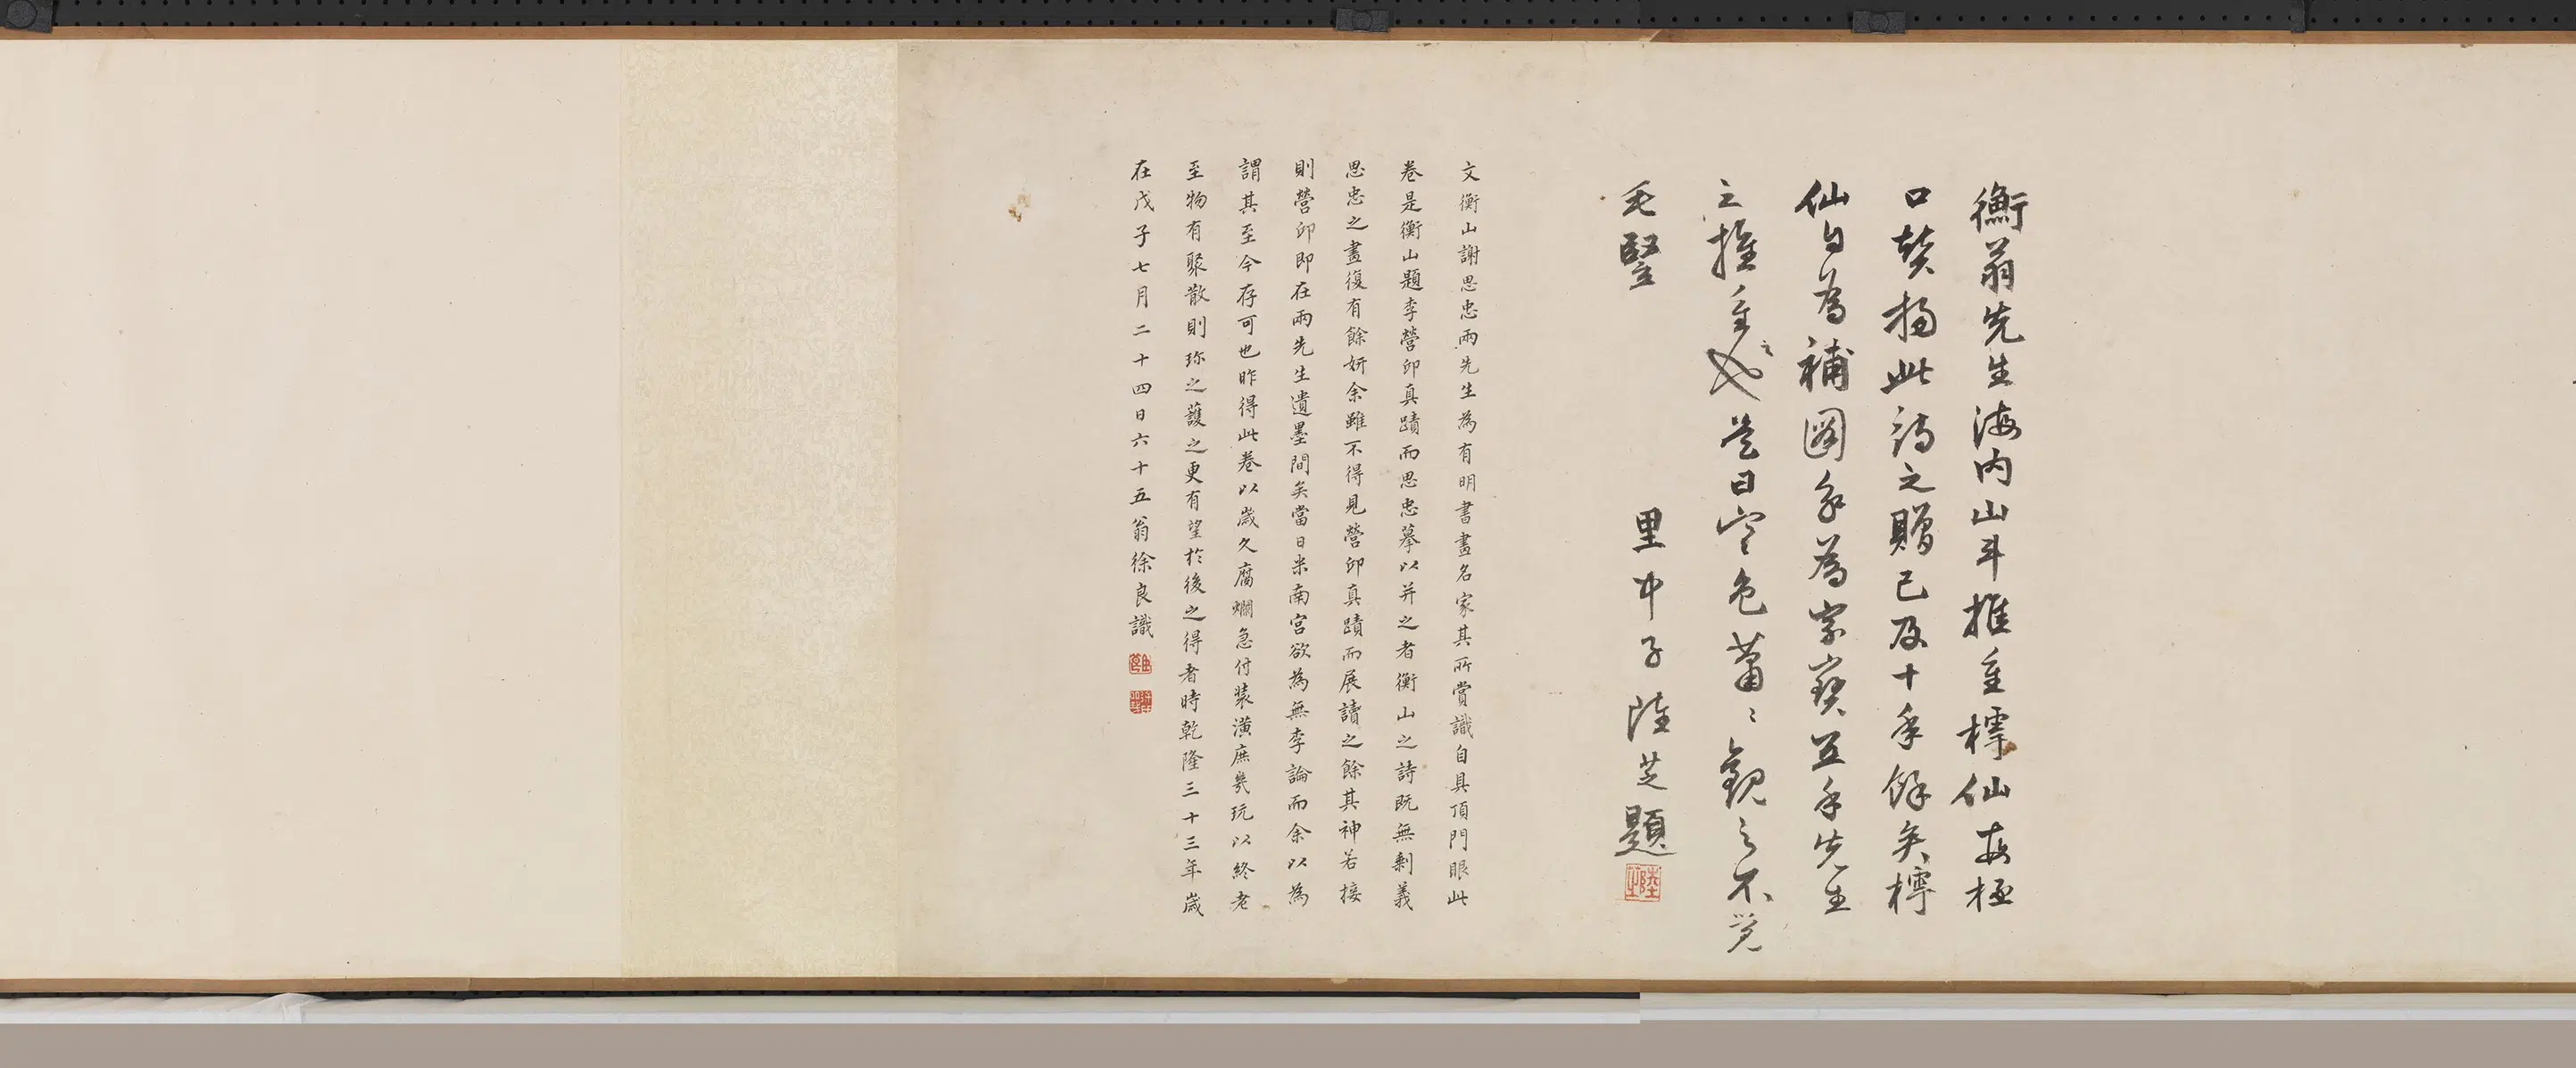 衡翁先生海内山斗推重樗仙每極
口獎揚此詩之贈已及十年餘矣樗
仙自為補圖手為家寶五年先生
之推重是日空色蕭〻觀之不覺
毛豎
里中子陸芝題
文衡山謝思忠兩先生為有明書畫名家其所賞識自具頂門眼此
卷是衡山題李營邱真蹟而思忠摹以并之者衡山之詩既無剩義
思忠之畫復有餘妍余雖不得見營邱真蹟而展讀之餘其神若接
則營邱即在兩先生遺墨間矣當日米南宮欲為無李論而余以為
謂其至今存可也昨得此卷以歲久腐爛急付裝潢庶幾玩以終老
至物有聚散則珍之護之更有望於後之得者時乾隆三十三年歲
在戊子七月二十四日六十五翁徐良識